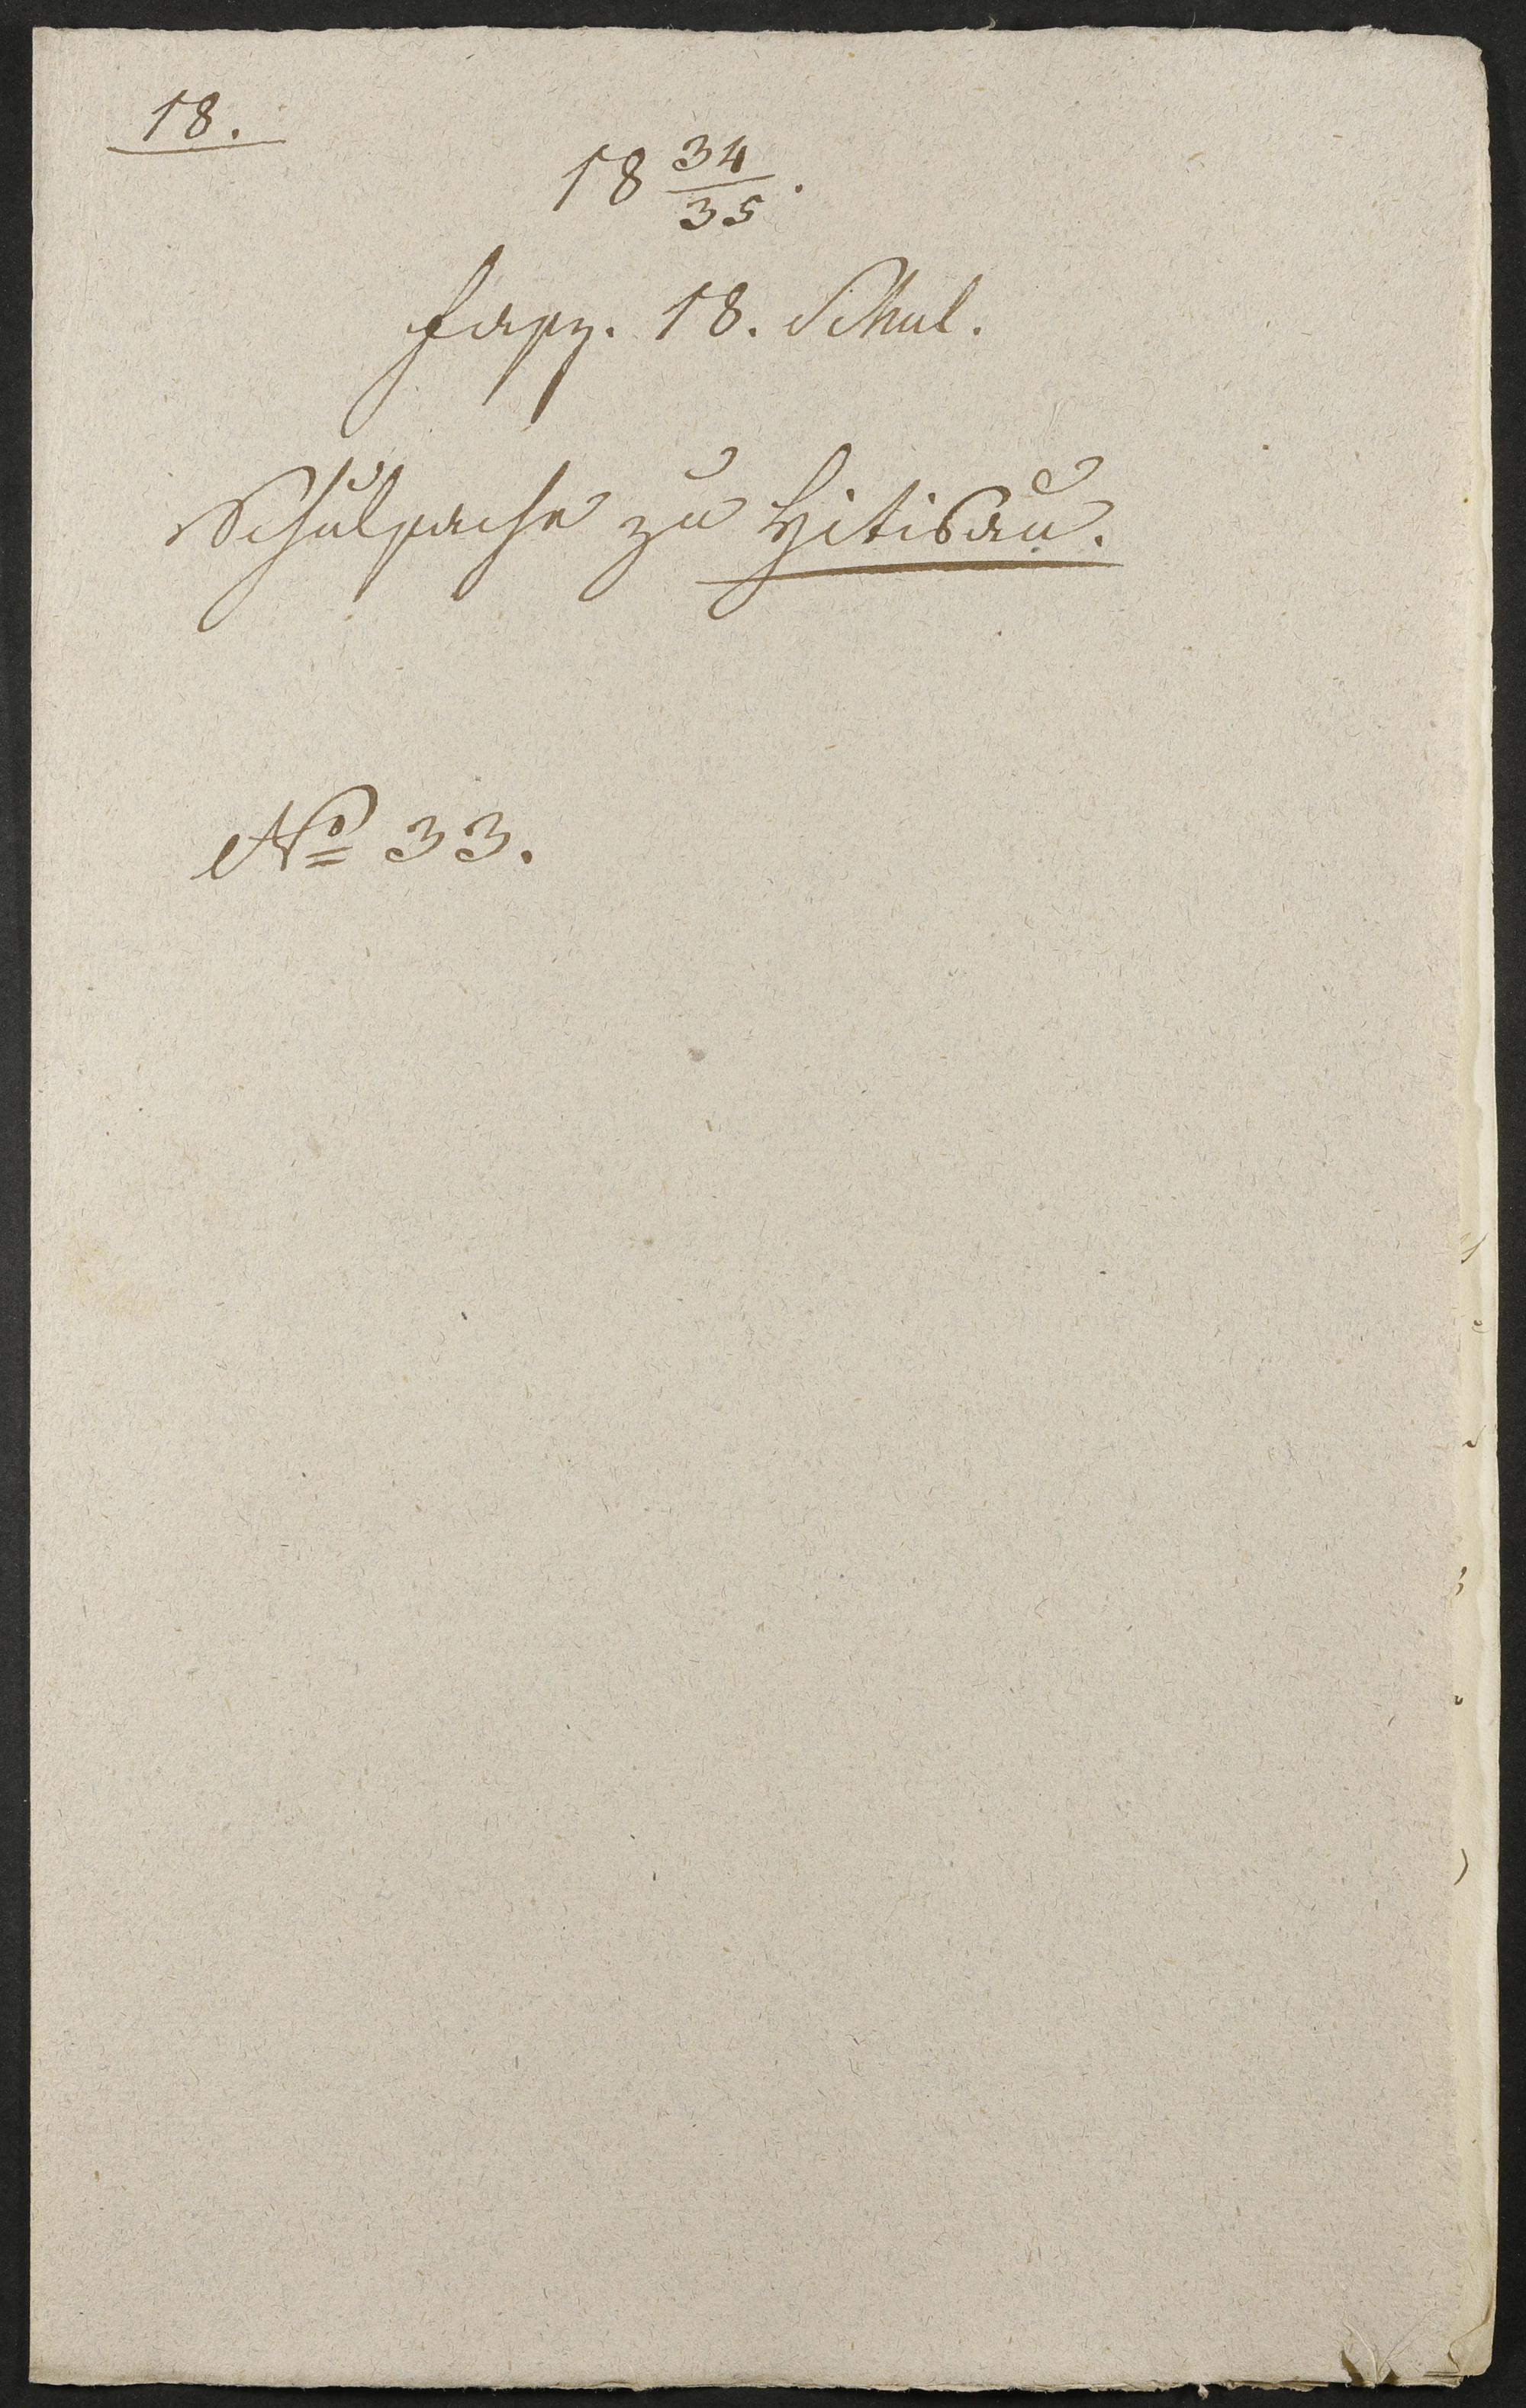 18.
18 34/35.
Fasz. 18. Schul.
Schulsache zu Hitisau.
No 33.